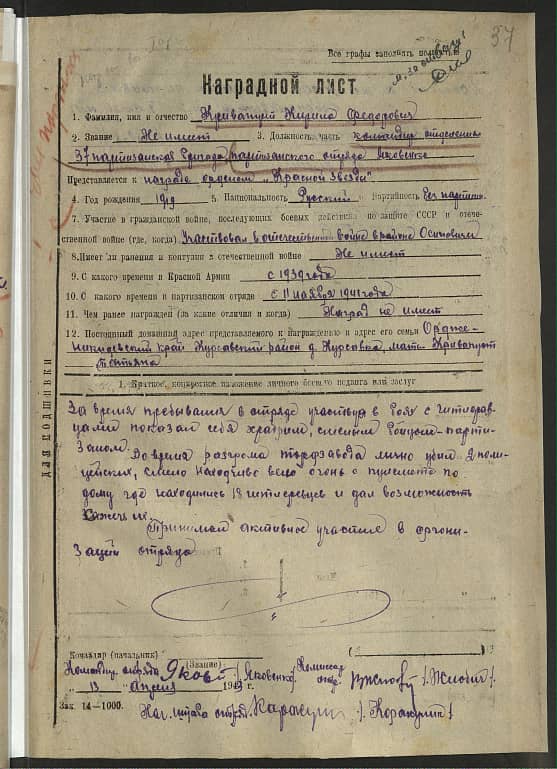 37
Все графы заполнять полностью
Наградной лист
1. Фамилия, имя и отчество Кривапуст Кирила Федорович
2. Звание Не имеет 3. Должность, часть командир отделения
37 партизанская бригада, партизанского отряда Яковенко
Представляется к награде орденом „Красной звезды"
4. Год рождения 1919 5. Национальность Русский Партийность Безпартийн.
7. Участие в гражданской войне, последующих боевых действиях по защите СССР и отече-
ственной войне (где, когда) Участвовал в отечественной войне в районе Осиповичи
8. Имеет ли ранения и контузии в отечественной войне Не имеет
9. С какого времени в Красной Армии с 1939 года
10. С какого времени в партизанском отряде с 11 ноября 1941 года
11. Чем ранее награжден (за какие отличия и когда) Наград не имеет
12. Постоянный домашний адрес представляемого к награждению и адрес его семьи Орджо-
никидзевский край Курсавский район д. Курсовка, мать Кривапуст
Татьяна
ДЛЯ ПОДШИВКИ
1. Краткое, конкретное изложение личного боевого подвига или заслуг
За время пребывания в отряде участвуя в боях с гитлеров-
цами показал себя храбрим, смелым бойцом-парти-
заном. Во время разгрома торфзавода лично убил 2 поли-
цейских, смело находчиво вело огонь с пулемета по
дому где находились 18 гитлеревцев и дал возможность
сжечь их.
Принимал активное участие в органи-
зации отряда
Командир (начальник)
(Звание)
Командир отряда Яков /Яковенко/ Комиссар отр. /Жигит/
„13" апреля 1943 г.
Зак. 14—1000. Нач. штаба отряда Каракул /Каракулин/